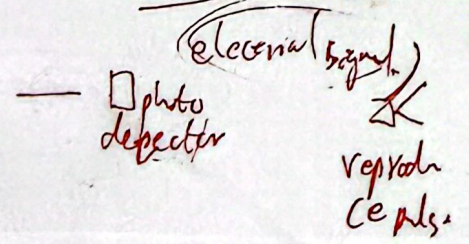 (elecerial signal)
photo
depector
reprodu
ce puls.